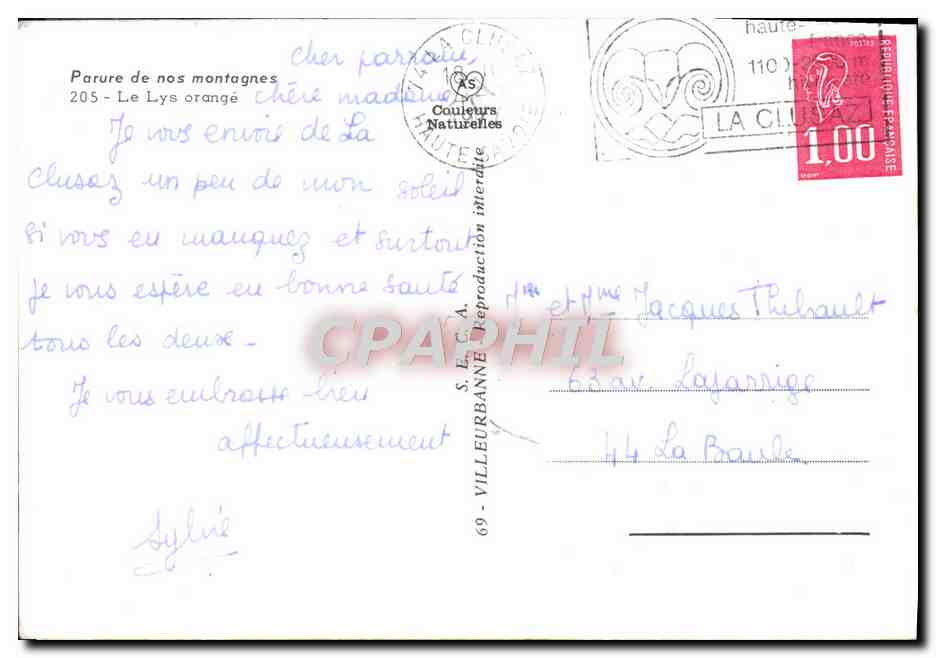 Parure de nos montagnes
205 - Le Lys orangé
cher parrain,
chère madame
Je vous envoie de La
clusaz un peu de mon soleil
si vous en manquez et surtout
je vous espère en bonne santé
tous les deux -
Je vous embrasse bien
affectueusement
Sylvie
AS
Couleurs
Naturelles
LA CLUSAZ
HAUTE SAVOIE
haute-
1100-
LA CLUSAZ
POSTES
REPUBLIQUE FRANÇAISE
1,00
69 - VILLEURBANNE Reproduction interdite
S. E. C. A.
Mr et Mme Jacques Thibault
63 av. Lajarrige
44 La Baule
CPAPHIL